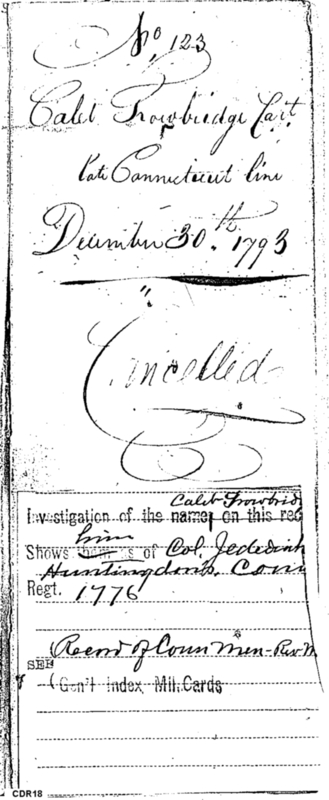 No 123
Caleb Trowbridge Capt.
late Connecticut line
December 30.th 1793
Cancelled
Caleb Trowbrid
Investigation of the name on this rec
him
Shows them as of Col. Jedediah
Huntingdon's, Conn
Regt. 1776
Record of Conn Men-Rev. W
SEE
Gen'l Index, Mil. Cards
CDR18